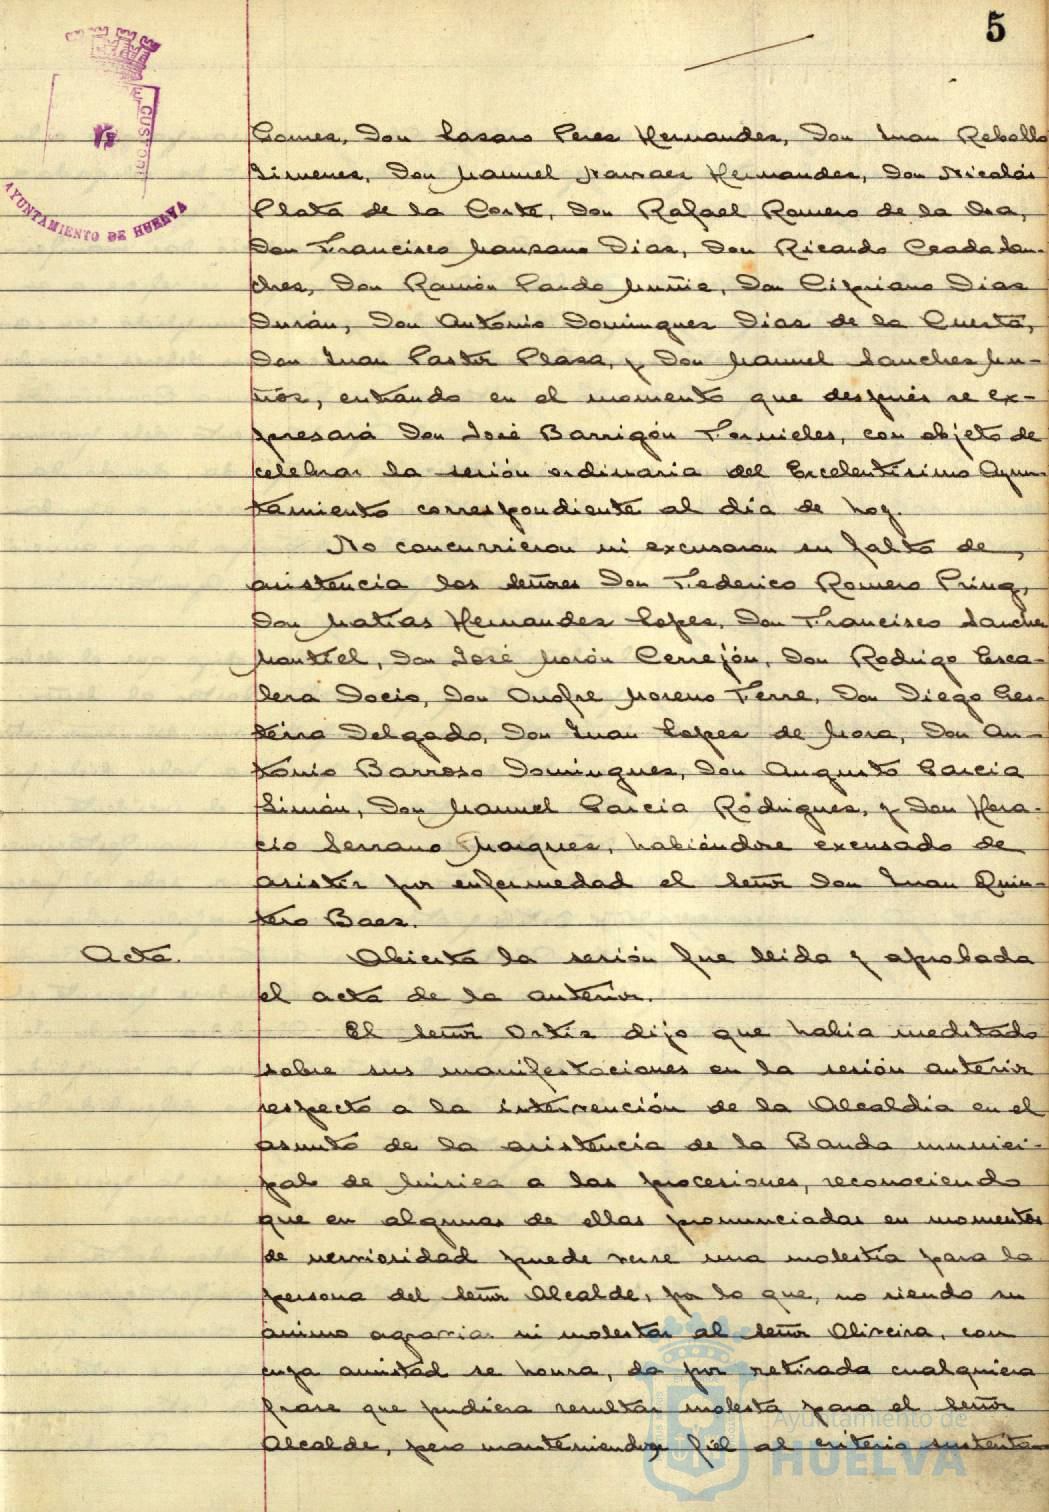 5
CUSTODI
AYUNTAMIENTO DE HUELVA
Gomez, Don Lazaro Perez Hernandez, Don Juan Rebollo
Jimenez, Don Manuel Narvaez Hernandez, Don Nicolás
Plata de la Corte, Don Rafael Romero de la Osa,
Don Francisco Manzano Dias, Don Ricardo Ceada San-
chez, Don Ramón Pardo Muñiz, Don Cipriano Dias
Durán, Don Antonio Dominguez Dias de la Cuesta,
Don Juan Pastor Plaza, y Don Manuel Sanchez Mu-
ñóz, entrando en el momento que después se ex-
presará Don José Barrigón Fornieles, con objeto de
celebrar la sesión ordinaria del Excelentísimo Ayun-
tamiento correspondiente al día de hoy.
No concurrieron ni excusaron su falta de
asistencia los señores Don Federico Romero Pring,
Don Matías Hernandez Lopez, Don Francisco Sanchez
Montiel, Don José Morón Cerrejón, Don Rodrigo Esca-
lera Docio, Don Onofre Moreno Ferre, Don Diego Ges-
teira Delgado, Don Juan Lopez de Mora, Don An-
tonio Barroso Dominguez, Don Augusto Garcia
Simón, Don Manuel Garcia Rodriguez, y Don Hora-
cio Serrano Marquez, habiéndose excusado de
asistir por enfermedad el señor Don Juan Quin-
tero Baez.
Acta.
Abierta la sesión fue leida y aprobada
el acta de la anterior.
El señor Ortiz dijo que había meditado
sobre sus manifestaciones en la sesión anterior
respecto a la intervención de la Alcaldia en el
asunto de la asistencia de la Banda munici-
pal de Música a las procesiones, reconociendo
que en algunas de ellas pronunciadas en momentos
de nerviosidad puede verse una molestia para la
persona del señor Alcalde, por lo que, no siendo su
ánimo agraviar ni molestar al señor Oliveira, con
cuya amistad se honra, da por retirada cualquiera
frase que pudiera resultar molesta para el señor
Alcalde, pero manteniendose fiel al criterio sustenta-
Ayuntamiento de
HUELVA